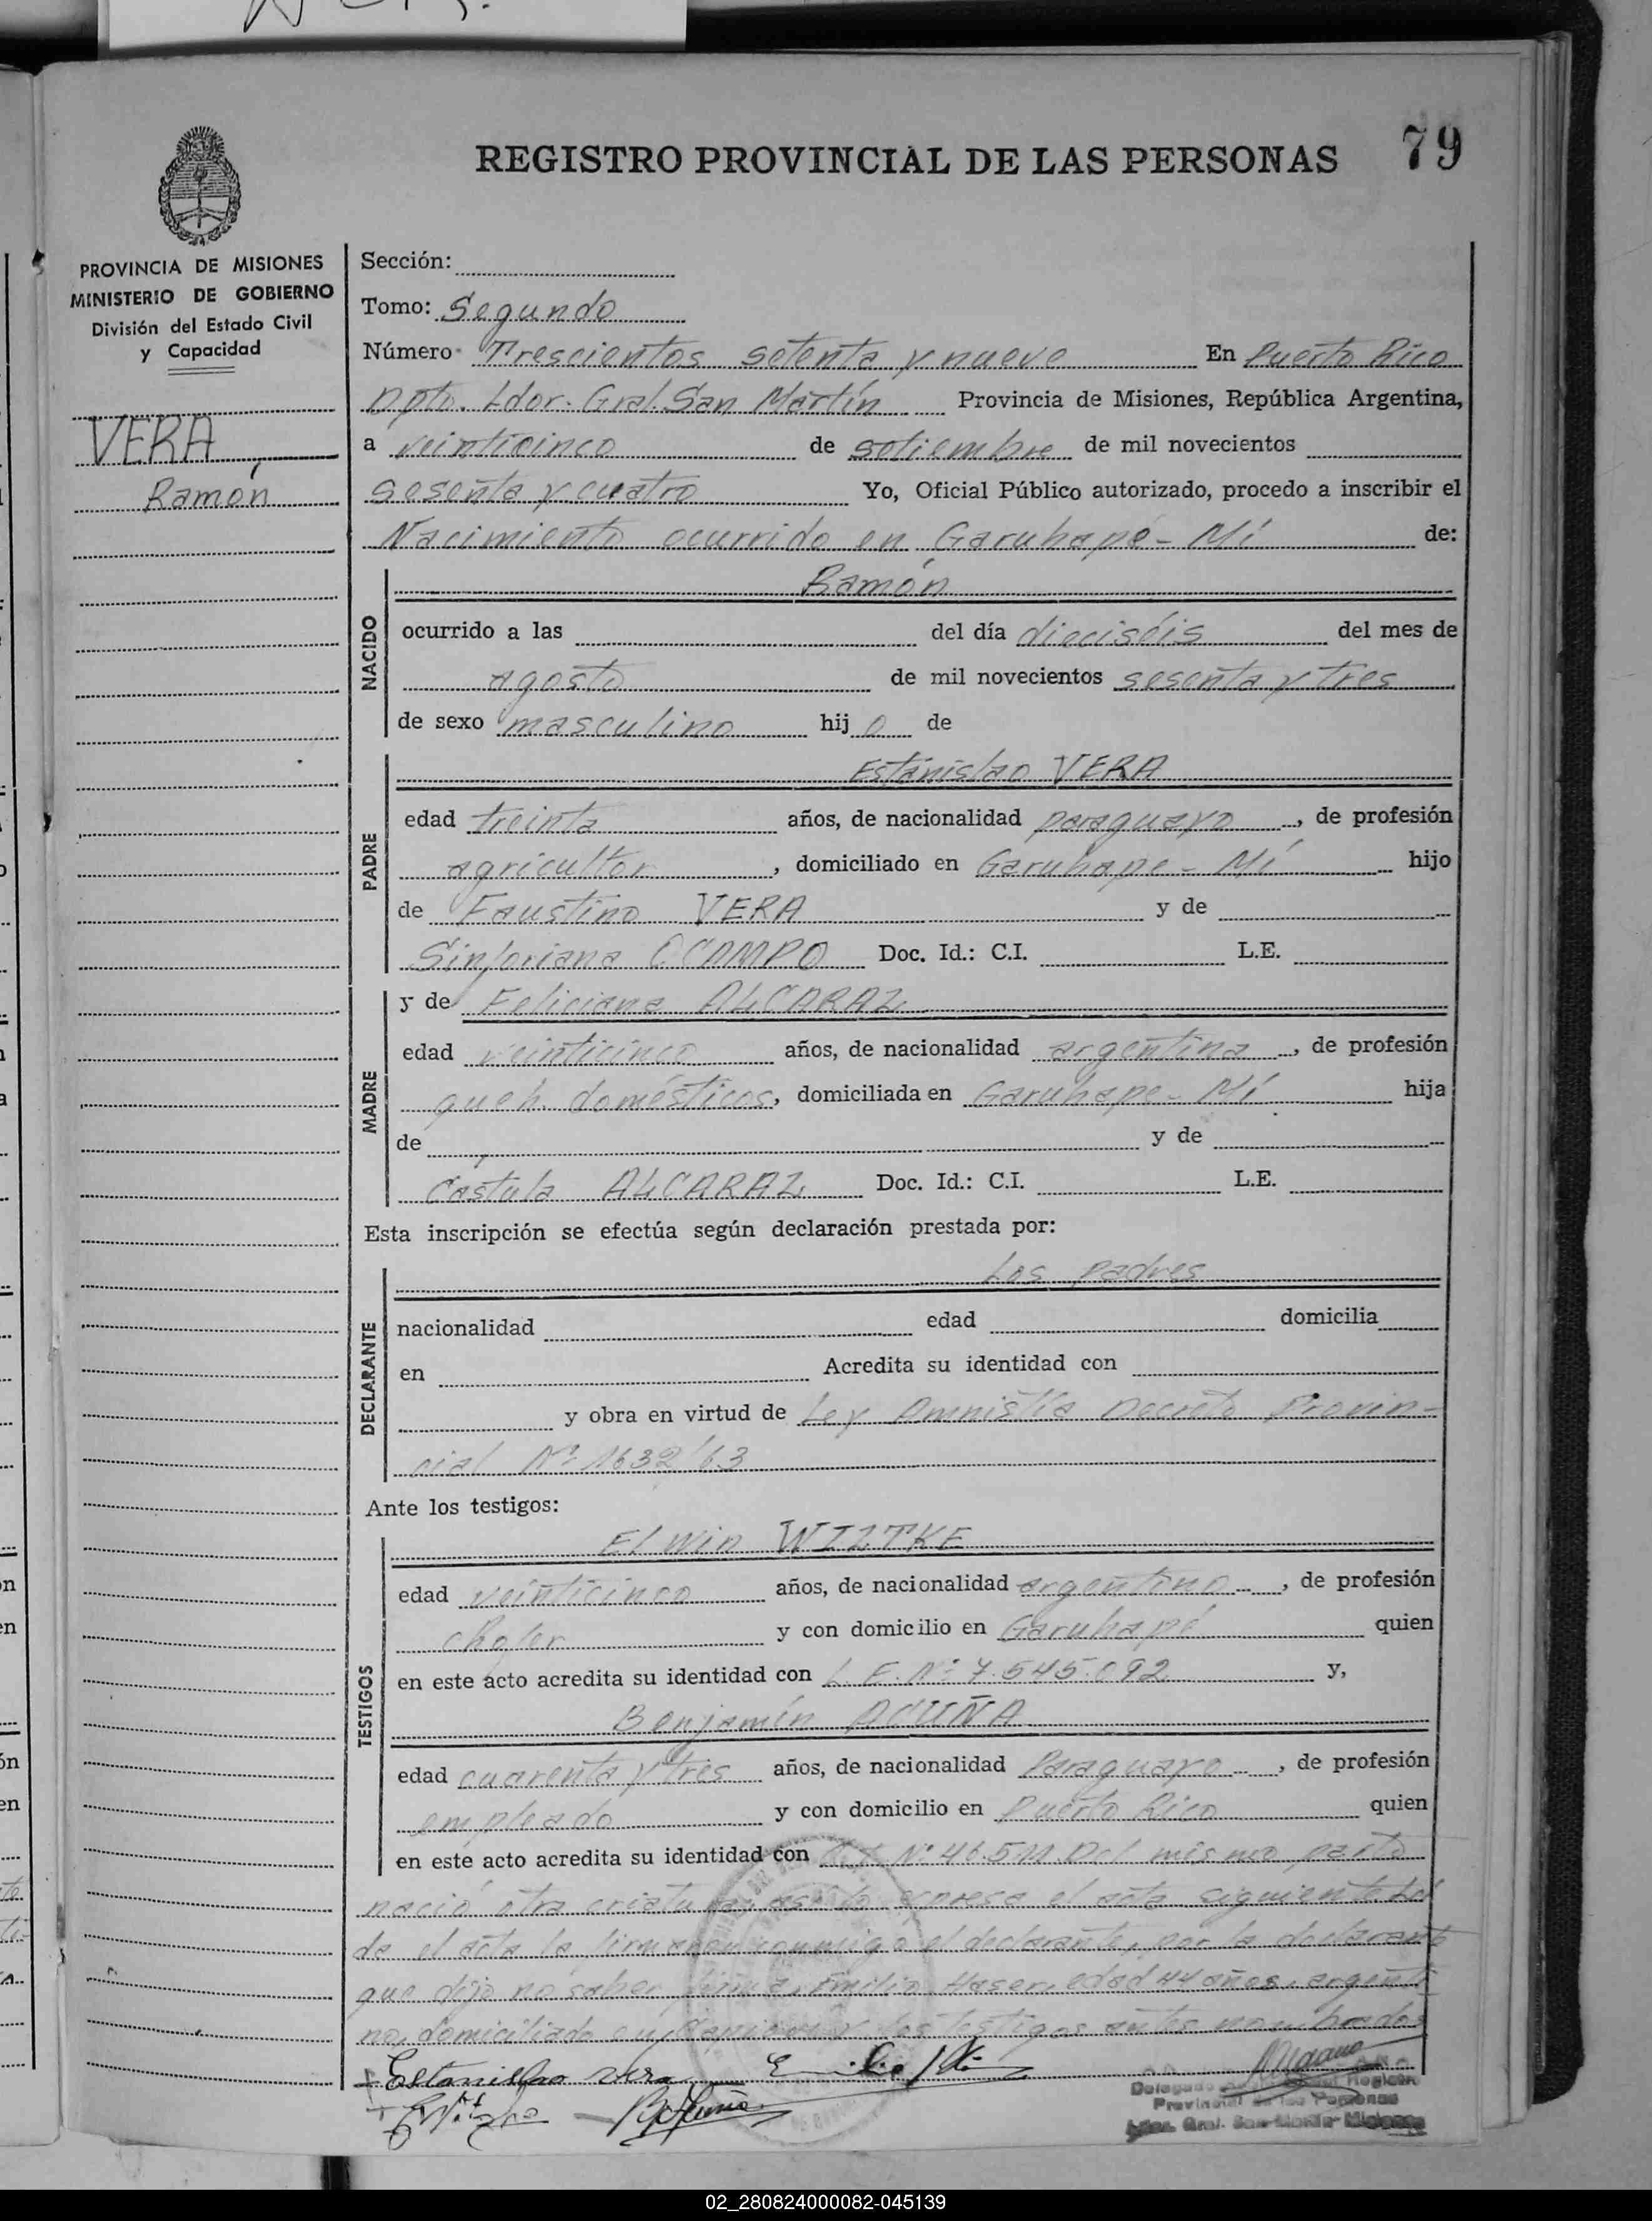 REGISTRO PROVINCIAL DE LAS PERSONAS 79
PROVINCIA DE MISIONES
MINISTERIO DE GOBIERNO
División del Estado Civil
y Capacidad
VERA,
Ramón
Sección:
Tomo: Segundo
Número Trescientos setenta y nueve En Puerto Rico
Dpto. Ldor. Gral. San Martín Provincia de Misiones, República Argentina,
a veinticinco de setiembre de mil novecientos
sesenta y cuatro Yo, Oficial Público autorizado, procedo a inscribir el
Nacimiento ocurrido en Garuhapé - Mí de:
NACIDO
Ramón
ocurrido a las del día dieciséis del mes de
agosto de mil novecientos sesenta y tres
de sexo masculino hijo de
PADRE
Estanislao VERA
edad treinta años, de nacionalidad paraguayo, de profesión
agricultor, domiciliado en Garuhape - Mí hijo
de Faustino VERA y de
Sinforiana OCAMPO Doc. Id.: C.I. L.E.
MADRE
y de Feliciana ALCARAZ
edad veinticinco años, de nacionalidad argentina, de profesión
queh. domésticos, domiciliada en Garuhape - Mí hija
de y de
Cástula ALCARAZ Doc. Id.: C.I. L.E.
Esta inscripción se efectúa según declaración prestada por:
DECLARANTE
Los padres
nacionalidad edad domicilia
en Acredita su identidad con
y obra en virtud de Ley Amnistía Decreto Provin-
cial Nº 1632/63
Ante los testigos:
TESTIGOS
Elwin WILTKE
edad veinticinco años, de nacionalidad argentino, de profesión
chofer y con domicilio en Garuhapé quien
en este acto acredita su identidad con L.E. Nº 7.545.092 y,
Benjamín ACUÑA
edad cuarenta y tres años, de nacionalidad Paraguayo, de profesión
empleado y con domicilio en Puerto Rico quien
en este acto acredita su identidad con Nº 46.511 Del mismo parto
nació otra criatura, así lo expresa el acta siguiente. Leí
da el acta la firmaron conmigo el declarante, por la declarante
que dijo no saber firmar Emilio Haser, edad 44 años, argenti
no, domiciliado en y los testigos antes nombrados
Estanislao Vera
Delegado Registro
Provincial de las Personas
Ldor. Gral. San Martín - Misiones
02_280824000082-045139